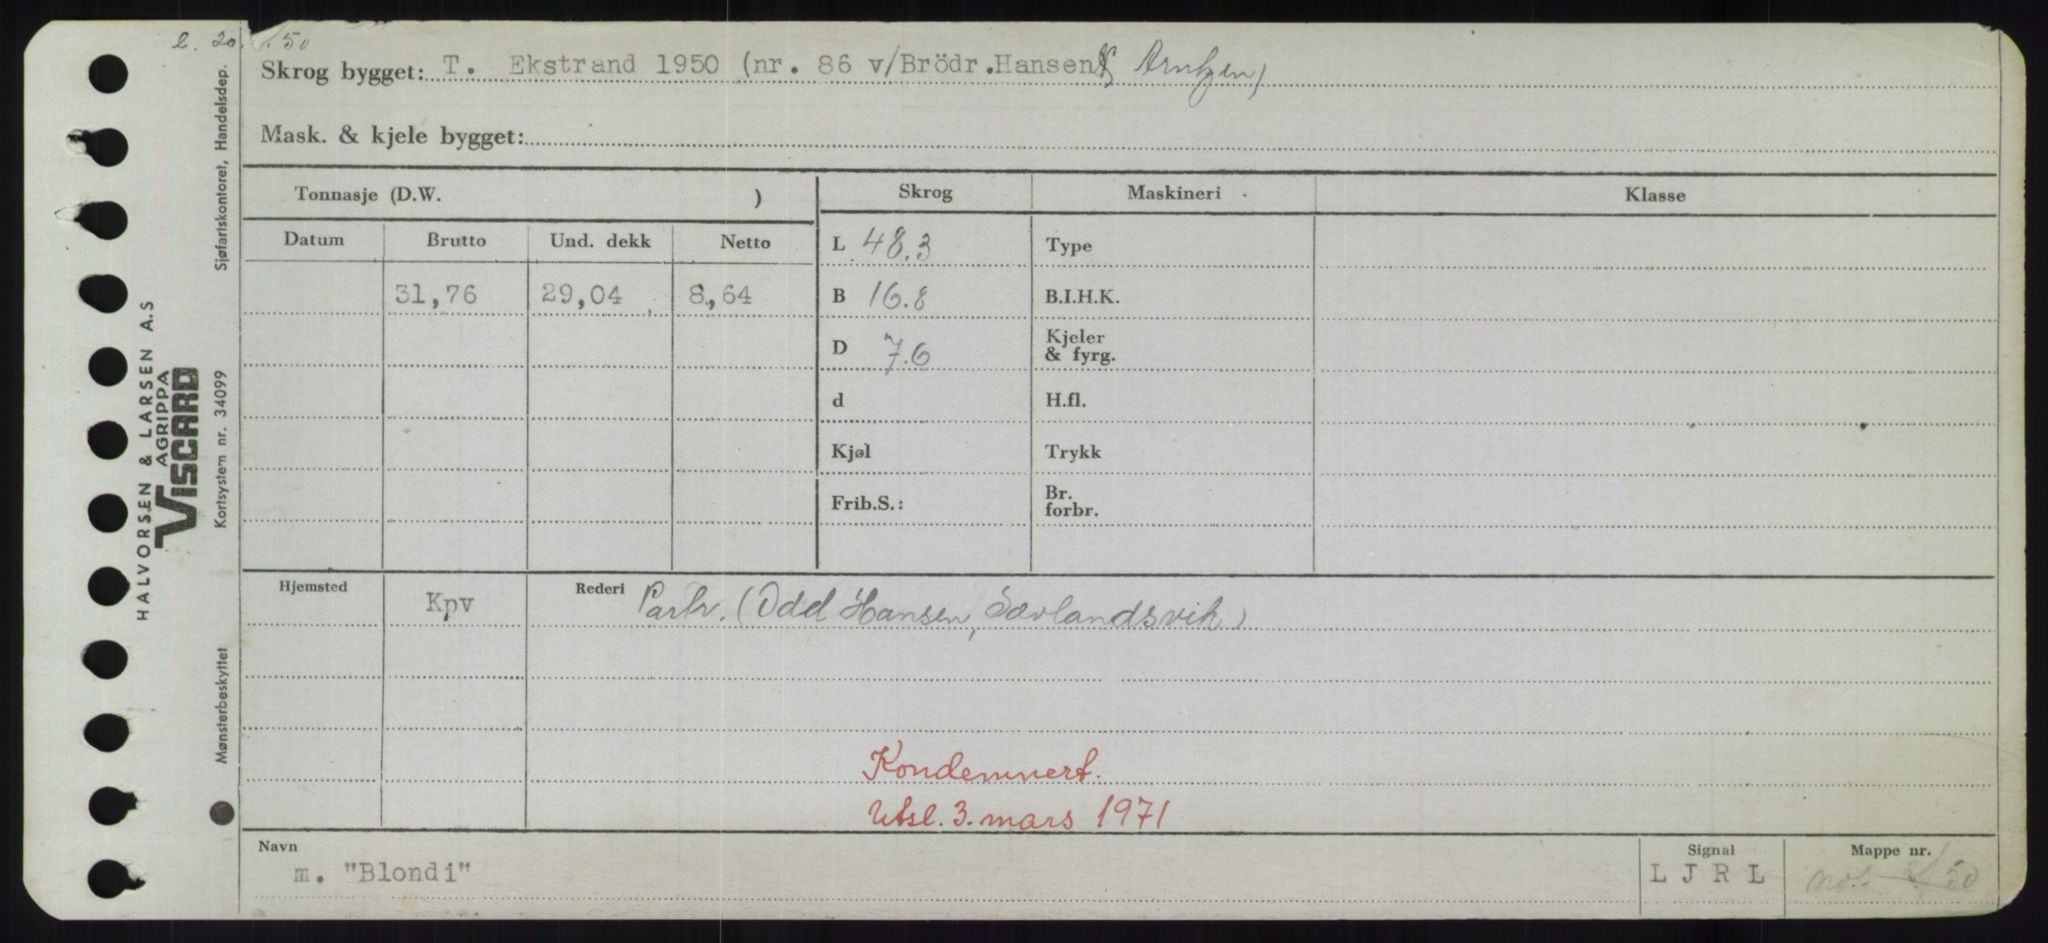 Skrog bygget: T. Ekstrand 1950 (nr. 86 v/Brödr.Hansen & Arntzen)
Mask. & kjele bygget:
Tonnasje (D.W. ) Skrog Maskineri Klasse
Datum Brutto Und. dekk Netto L 48.3 Type
31,76 29,04 8,64 B 16.8 B.I.H.K.
D 7.6 Kjeler & fyrg.
d H.fl.
Kjøl Trykk
Frib.S.: Br. forbr.
Hjemsted Kpv Rederi Partr. (Odd Hansen, Sævlandsvik)
Kondemnert.
Utsl. 3. mars 1971
Navn Signal Mappe nr.
m. "Blondi" L J R L
HALVORSEN & LARSEN A.S
AGRIPPA
VISCARD
Mønsterbeskyttet Kortsystem nr. 34099 Sjøfartskontoret, Handelsdep.